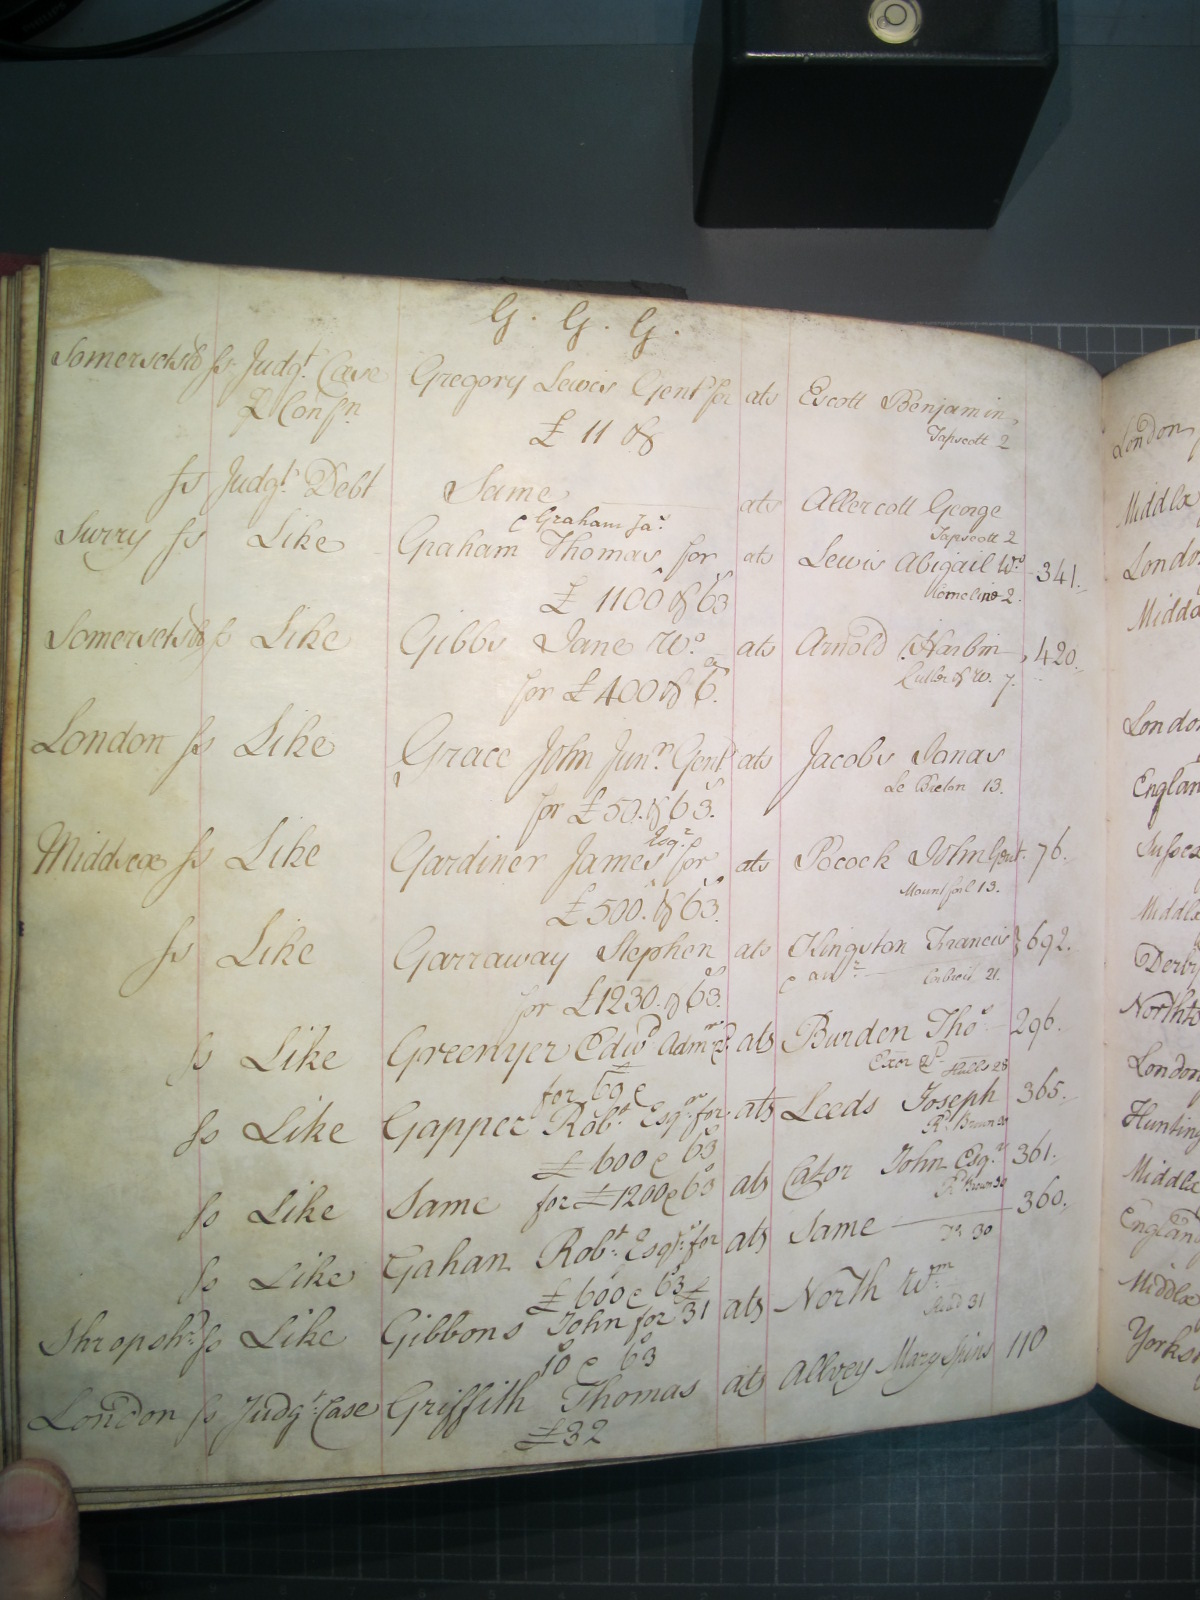 G. G. G.
Somersetsh ss Judgt. Case Gregory Lewis Gent for ats Escott Benjamin,
& Confn. £ 11 Tapscott 2
ss Judgt. Debt Same ats Allercott George
Tapscott 2
Surry ss Like Graham Thomas for ats Lewis Abigail Wo. 341.
& Graham Jas.
£ 1100 & 63
Somersetsh ss Like Gibbs Jane Wo. ats Arnold Harbin 420.
for £ 400 & 6. 7.
London ss Like Grace John Junr. Gent ats Jacobs Jonas
for £ 50. & 63. Le Breton 13.
Middsex ss Like Gardiner James Esqr. for ats Pocock John Gent. 76.
£ 500. & 63. 13.
ss Like Garraway Stephen ats Kingston Francis 692.
& anr. 21.
for £1230. & 63.
ss Like Greenyer Edwd Admr &c ats Burden Thos. 296.
Exor &c Halls 28
for 60
ss Like Gapper Robt. Esqr. for ats Leeds Joseph 365.
£ 600 & 63 Rd. Brown 30
ss Like Same for £1200 & 63 ats Cator John Esqr. 361.
Rd Brown 30
ss Like Gahan Robt. Esqr. for ats Same 360.
£ 600 & 63 30
Shropshr. ss Like Gibbons John for £31 ats North Wm
10 & 63 31
London ss Judgt. Case Griffith Thomas ats Allvey Mary Spins 110
£32
London
Middlx
London
Middx
London
England
Sussex
Middlx
Derby
Northt
London
Hunting
Middlx
England
Middlx
Yorksh